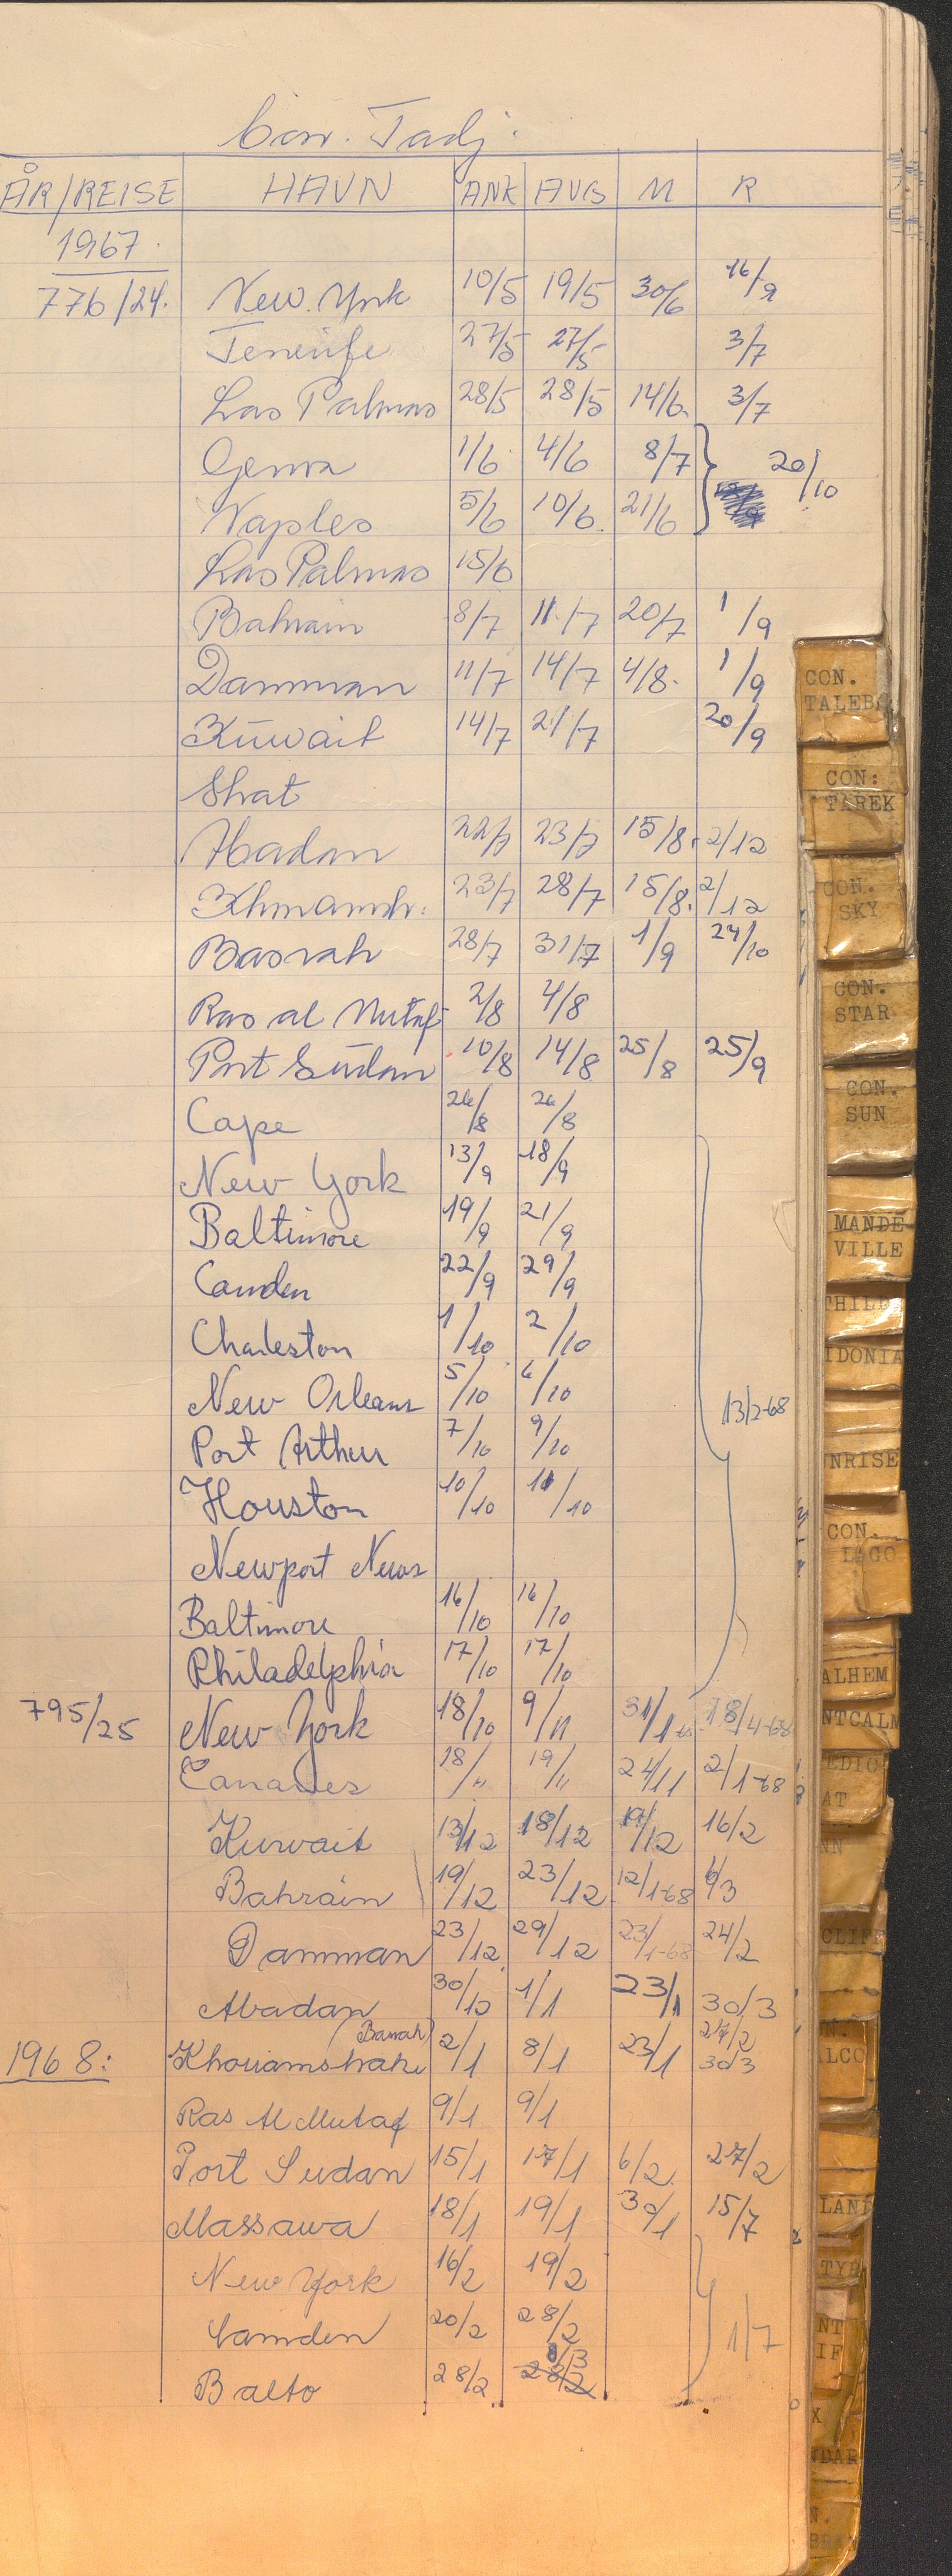 Con. Tadj.
ÅR/REISE HAVN ANK AVG M R
1967.
776/24. New York 10/5 19/5 30/6 16/9
Tenerife 27/5 27/5 3/7
Las Palmas 28/5 28/5 14/6. 3/7
Genoa 1/6 4/6 8/7 20/10
Naples 5/6 10/6. 21/6
Las Palmas 15/6
Bahrain 8/7 11/7 20/7 1/9
Damman 11/7 14/7 4/8. 1/9
Kuwait 14/7 21/7 20/9
Shat
Abadan 22/7 23/7 15/8. 2/12
Khmamsh. 23/7 28/7 15/8. 2/12
Basrah 28/7 31/7 1/9 24/10
Ras al Mutaf 2/8 4/8
Port Sudan 10/8 14/8 25/8 25/9
Cape 26/8 26/8
New York 13/9 18/9
Baltimore 19/9 21/9
Camden 22/9 29/9
Charleston 1/10 2/10
New Orleans 5/10 6/10
13/2-68
Port Arthur 7/10 9/10
Houston 10/10 10/10
Newport News
Baltimore 16/10 16/10
Philadelphia 17/10 17/10
795/25 New York 18/10 9/11 31/1-68 18/4-68
Canaries 18/11 19/11 24/11 2/1-68
Kuwait 13/12 18/12 19/12 16/2
Bahrain 19/12 23/12 12/1-68 6/3
Damman 23/12 29/12 23/1-68 24/2
Abadan 30/12 1/1 23/1 30/3
(Basrah) 27/2
1968: Khoriamshahr 2/1 8/1 23/1 30/3
Ras Al Mutaf 9/1 9/1
Port Sudan 15/1 17/1 6/2 27/2
Massawa 18/1 19/1 30/1 15/7
New York 16/2 19/2
Camden 20/2 28/2 1/7
8/3
Balto 28/2 28/2
CON.
TALEB
CON:
TAREK
CON.
SKY
CON.
STAR
CON.
SUN
MANDE-
VILLE
THILD
IDONIA
NRISE
CON.
LAGO
ALHEM
NTCALM
EDIC
AT
NN
CLIFF
N.
ALCO
LAND
TYR
NT
IF
X
NDAR
N.